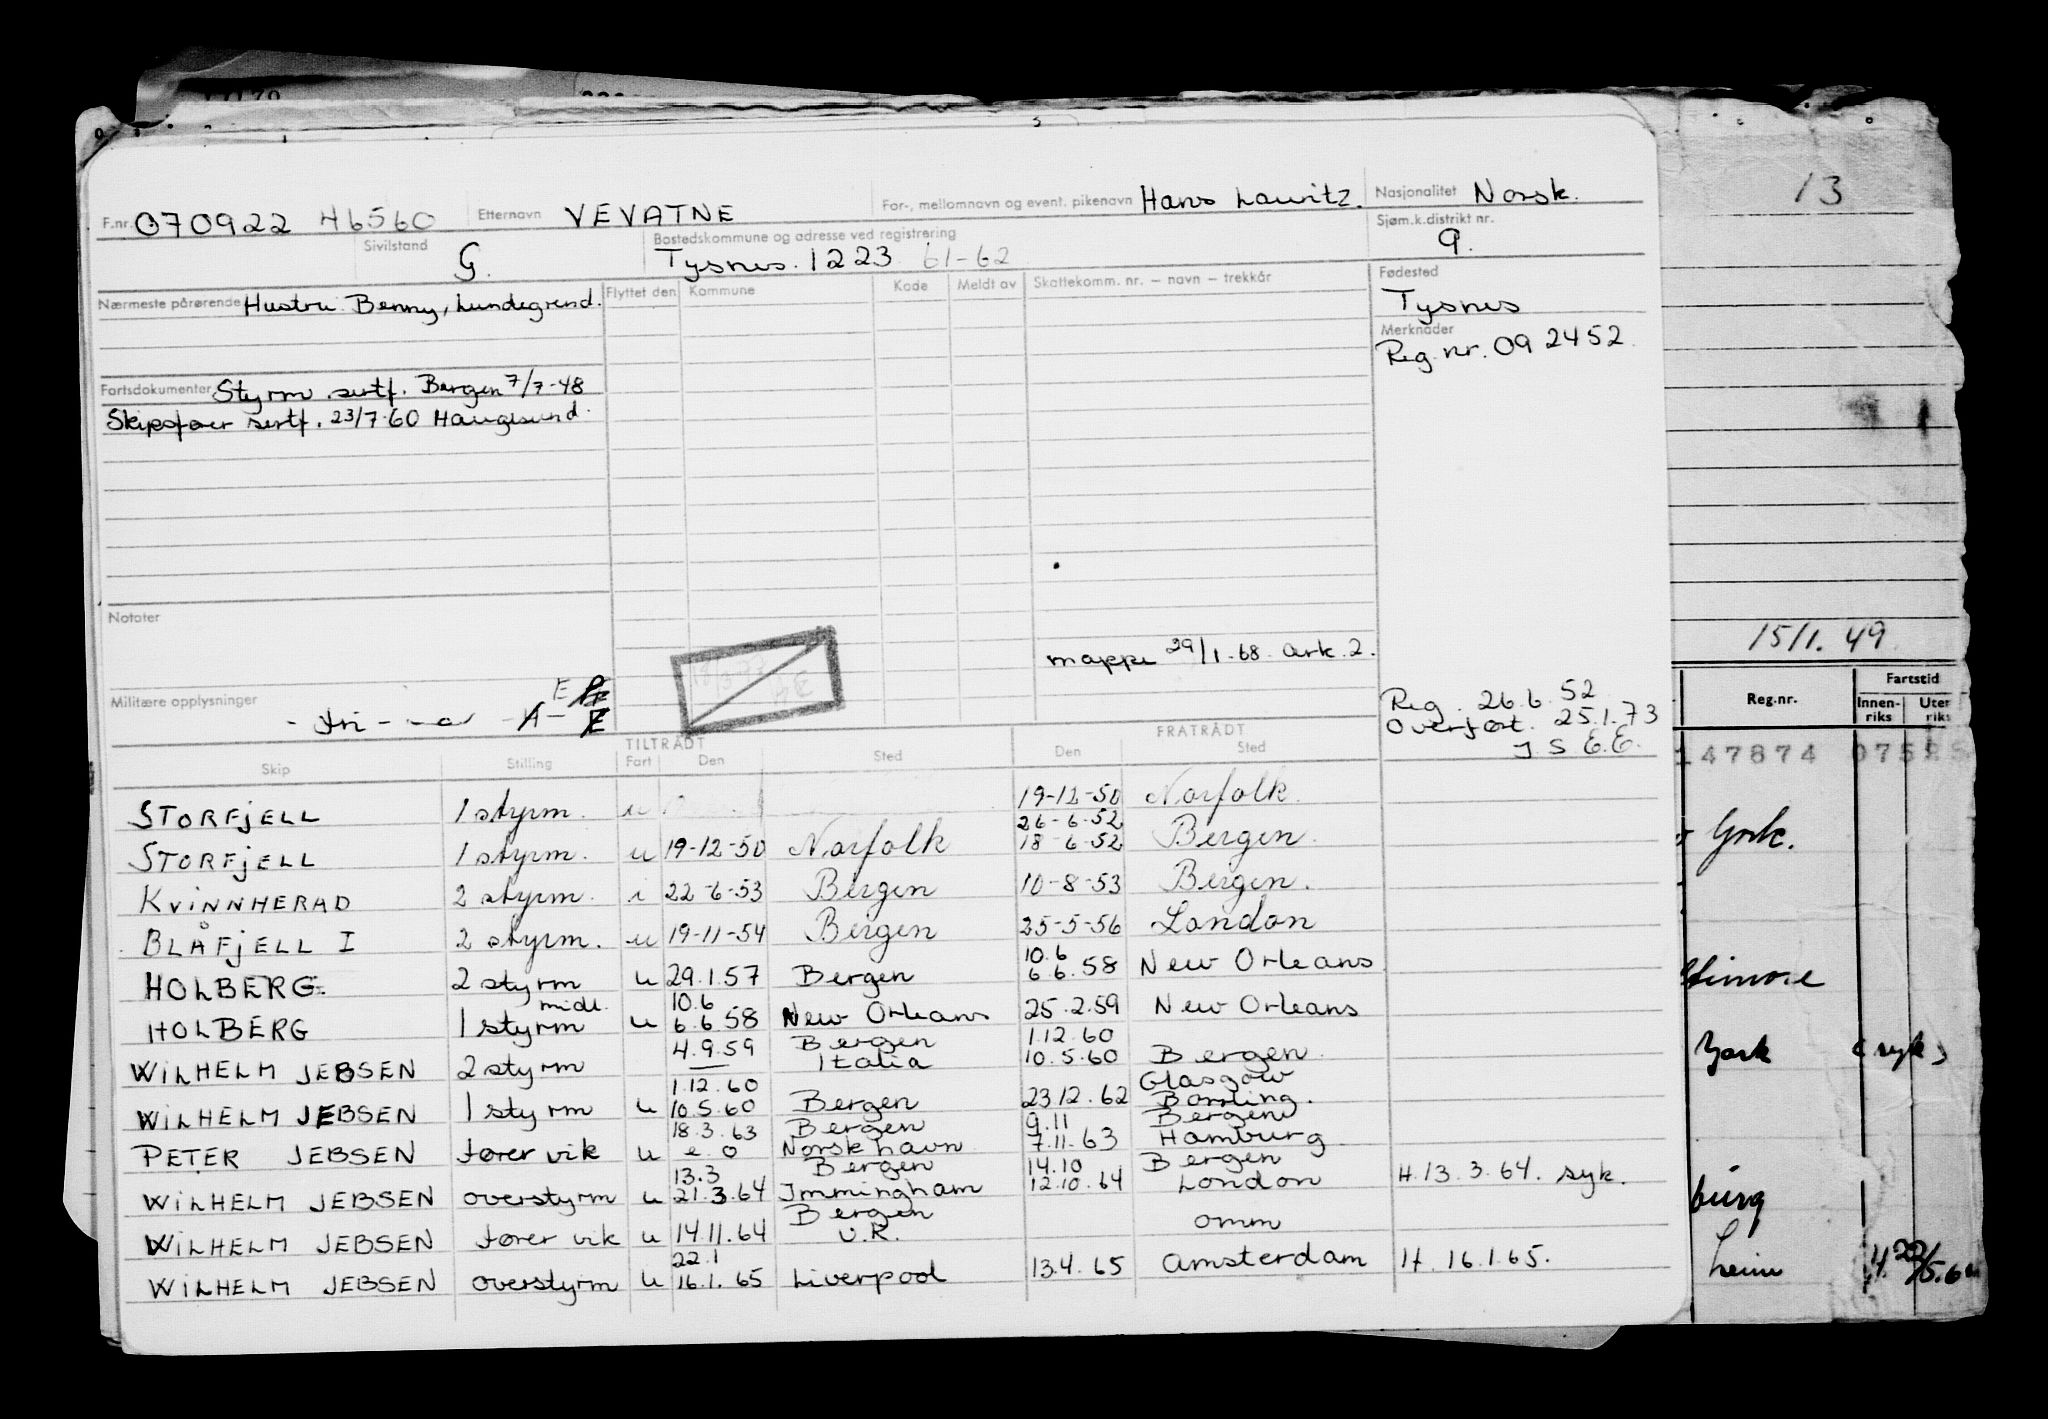 13
F.nr. 070922 46560 Etternavn VEVATNE For-, mellomnavn og event. pikenavn Hans Lauritz. Nasjonalitet Norsk.
Sivilstand G. Bostedskommune og adresse ved registrering Tysnes. 1223 61-62 Sjøm.k.distrikt nr. 9.
Nærmeste pårørende Hustru Benny, Lundegrend. Flyttet den Kommune Kode Meldt av Skattekomm. nr. – navn – trekkår Fødested
Tysnes
Merknader
Reg. nr. 09 2452.
Fartsdokumenter Styrm sertf. Bergen 7/7-48
Skipsfører sertf. 23/7-60 Haugesund.
Notater
mappe 29/1-68 ark. 2.
Militære opplysninger
Reg. 26.6.52
Overført. 25.1.73
J S E.E.
TILTRÅDT FRATRÅDT
Skip Stilling Fart Den Sted Den Sted
STORFJELL 1 styrm. u 19-12-50 Norfolk.
26-6-52
STORFJELL 1 styrm. u 19-12-50 Norfolk 18-6-52 Bergen.
KVINNHERAD 2 styrm. i 22-6-53 Bergen 10-8-53 Bergen.
BLÅFJELL I 2 styrm. u 19-11-54 Bergen 25-5-56 London
10.6
HOLBERG. 2 styrm u 29.1.57 Bergen 6.6.58 New Orleans
midl. 10.6
HOLBERG 1 styrm u 6.6.58 New Orleans 25.2.59 New Orleans
4.9.59 Bergen 1.12.60
WILHELM JEBSEN 2 styrm — Italia 10.5.60 Bergen.
1.12.60 Glasgow
WILHELM JEBSEN 1 styrm u 10.5.60 Bergen 23.12.62
18.3.63 Bergen 9.11 Bergen
PETER JEBSEN fører vik u e.o Norsk havn 7.11.63 Hamburg
13.3 Bergen 14.10 Bergen
WILHELM JEBSEN overstyrm u 21.3.64 Immingham 12.10.64 London H. 13.3.64. syk.
Bergen
WILHELM JEBSEN fører vik u 14.11.64 U.R. omm
22.1
WILHELM JEBSEN overstyrm u 16.1.65 Liverpool 13.4.65 Amsterdam H. 16.1.65.
15/1.49
Reg.nr. Fartstid
Innen-
riks
Uten
riks
147874
York.
York (syk)
burg
heim